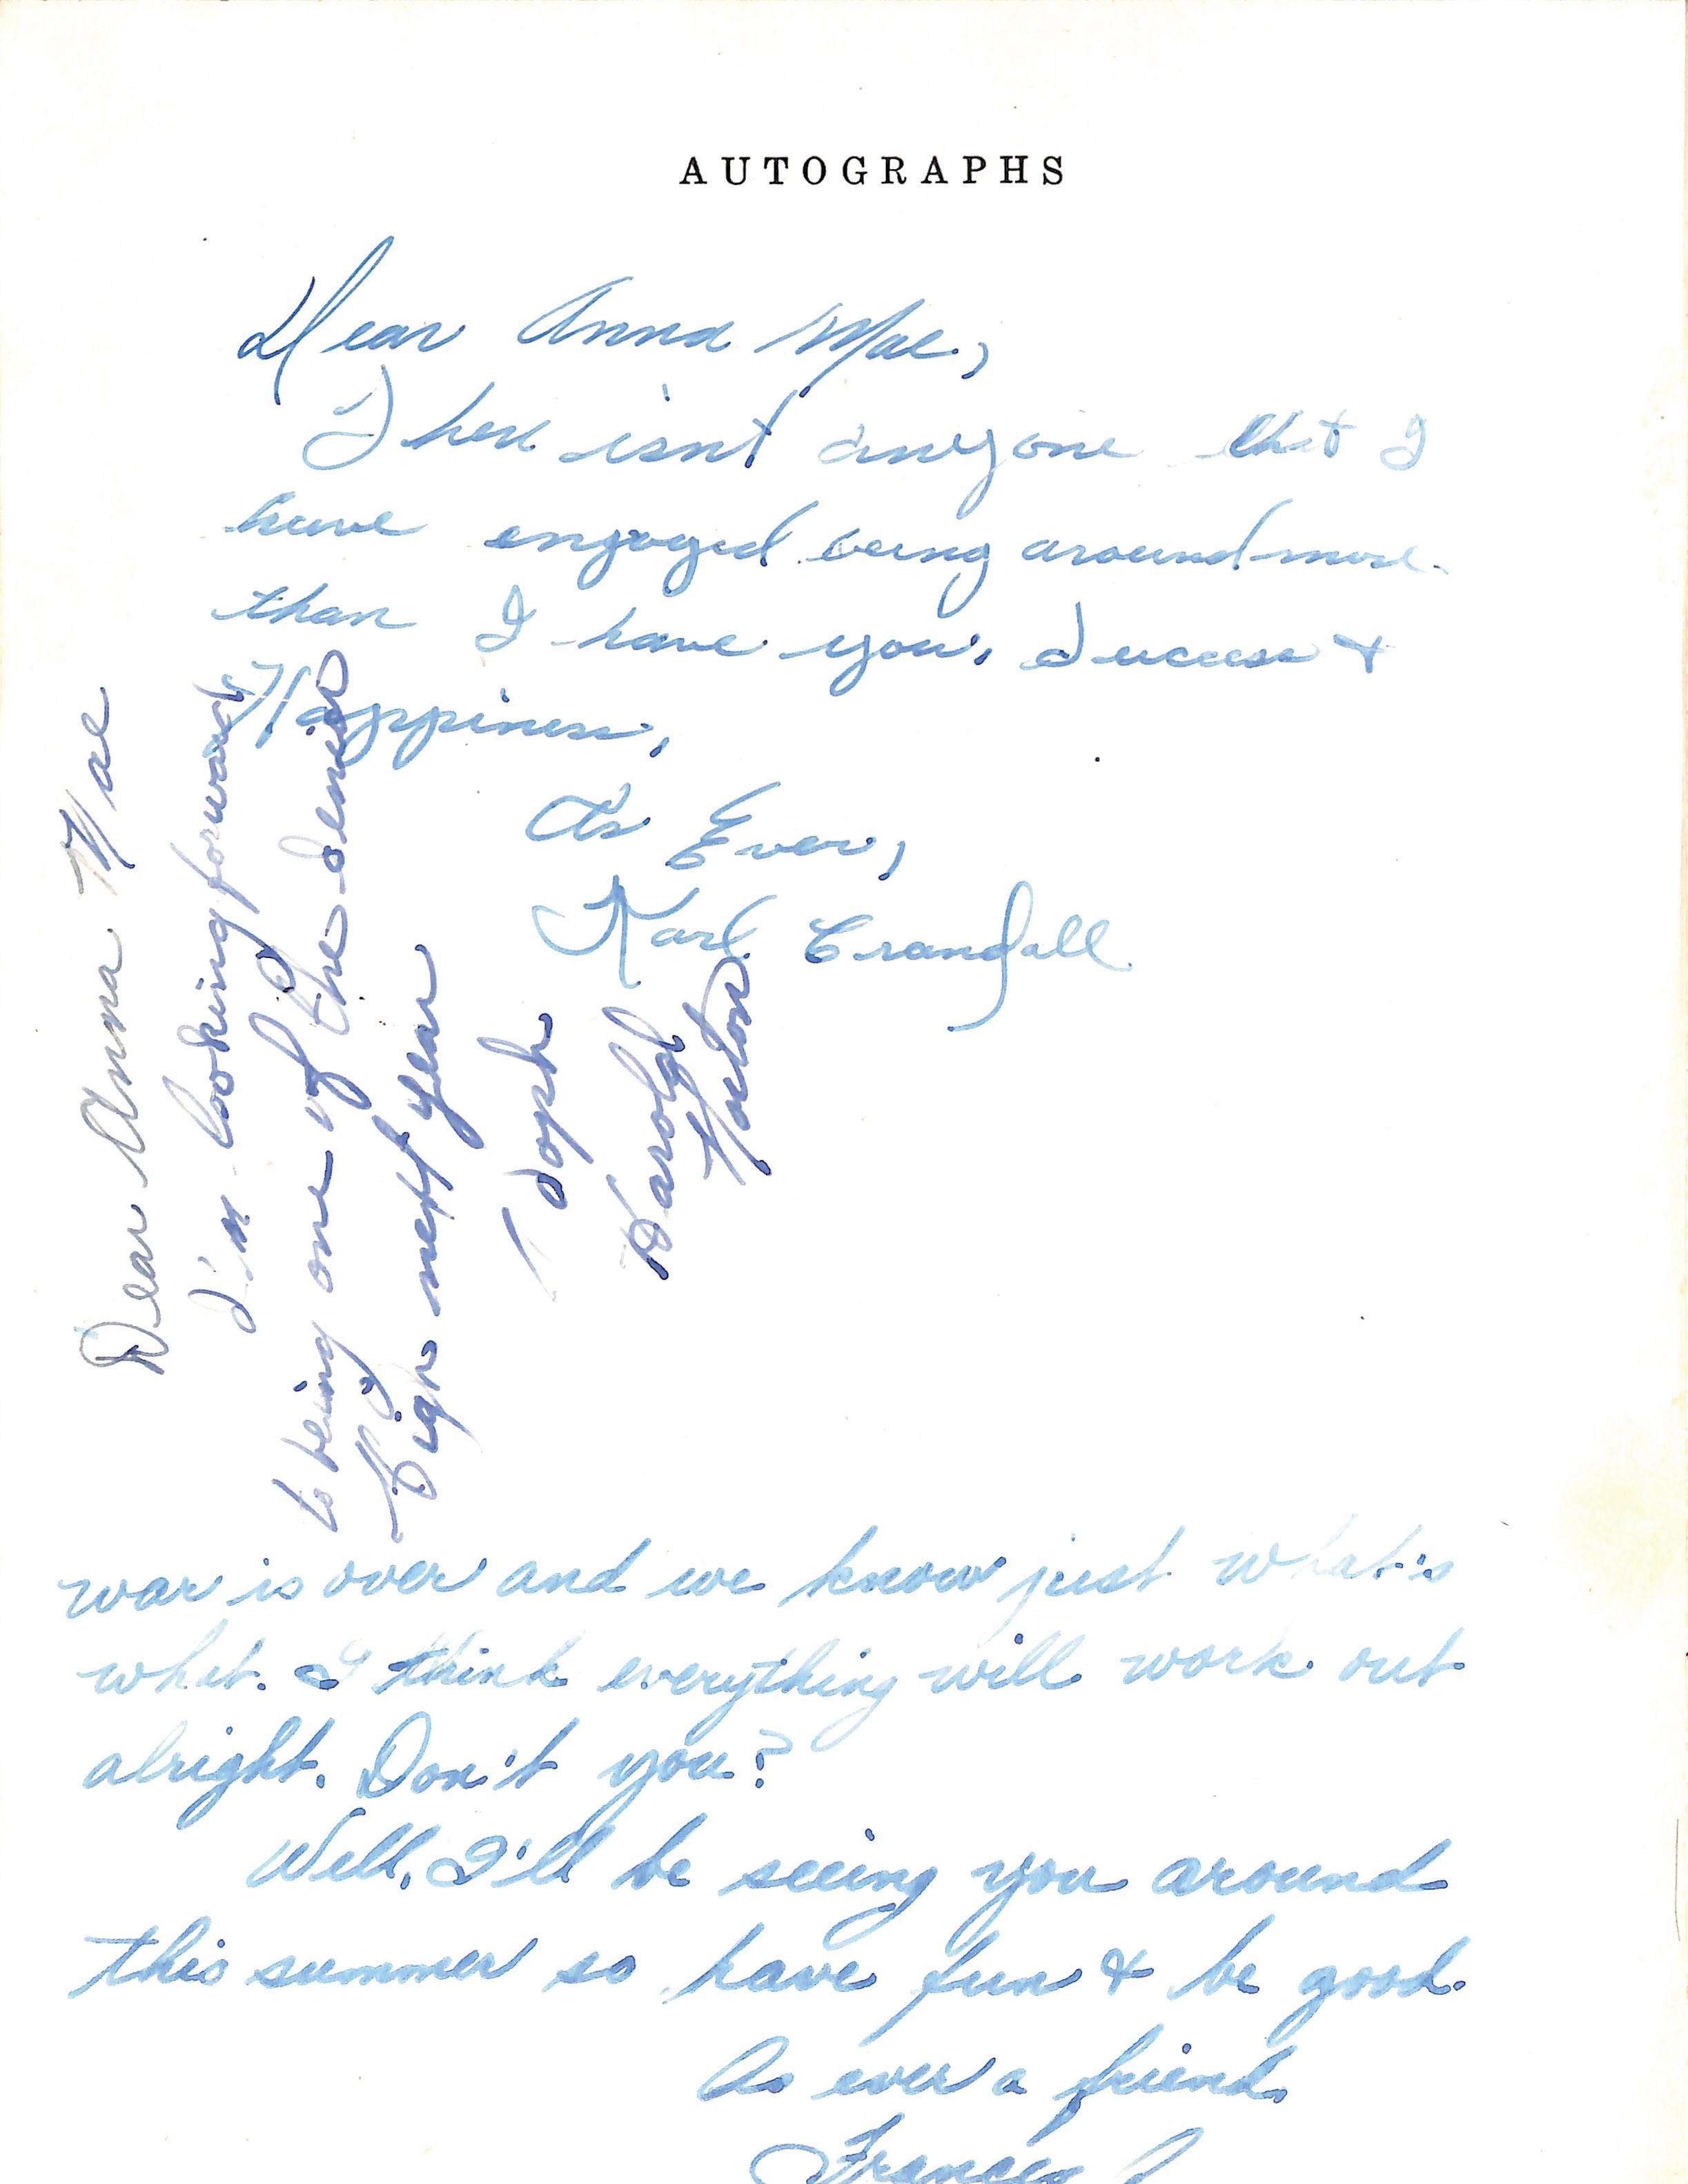 AUTOGRAPHS
Dear Anna Mae,
There isn't anyone that I
have engoyed being around more
than I have you. Success &
Happiness,
As Ever,
Karl Crandall
Dear Anna Mae
I'm looking forward
to being one of the Senior
high next year
Soph
Harold
Horton
war is over and we know just what's
what. I think everything will work out
alright. Don't you?
Well, I'll be seeing you around
this summer so have fun & be good.
As ever a friend,
Frances